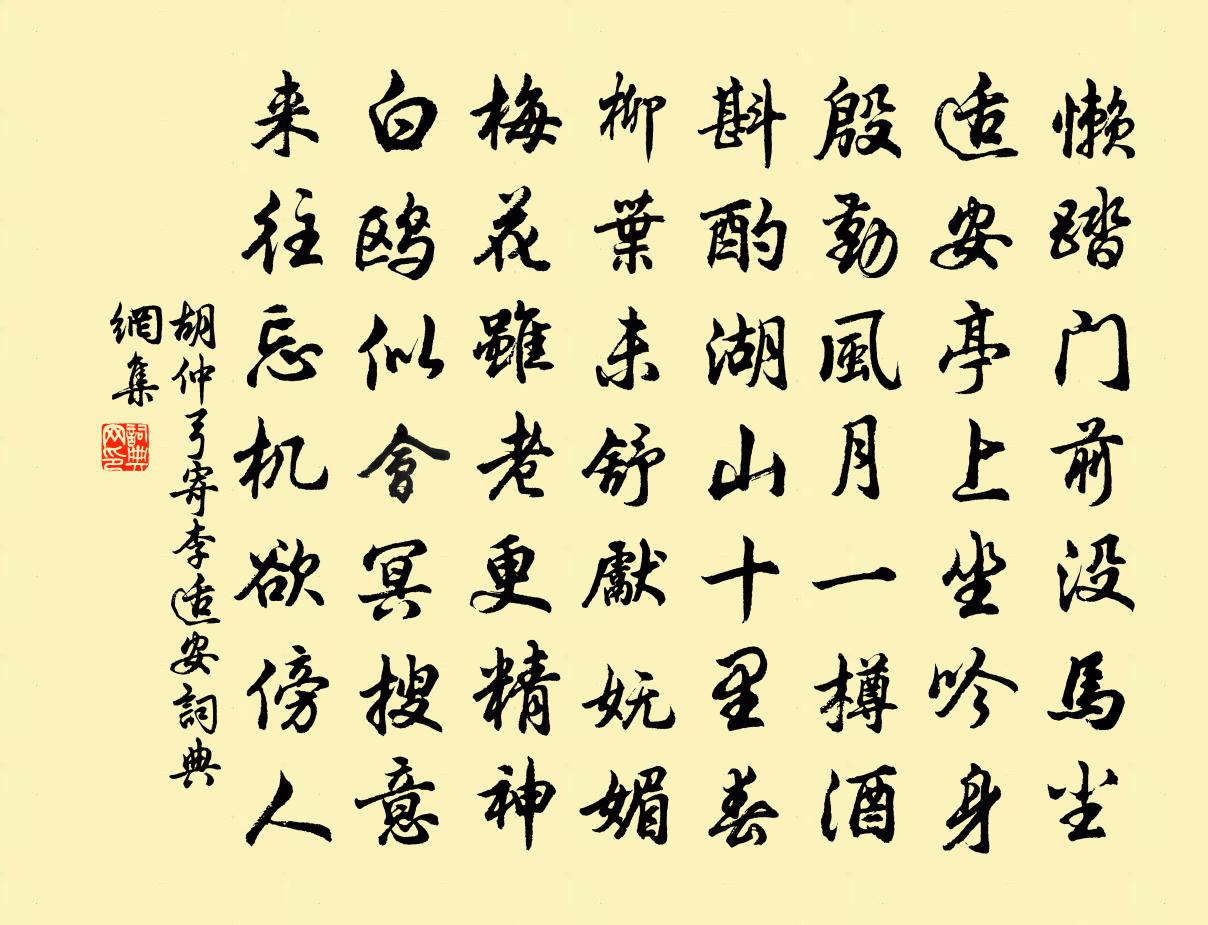 懒踏门前没馬尘
适安亭上坐吟身
殷勤風月一樽酒
斟酌湖山十里春
柳葉未舒獻妩媚
梅花雖老更精神
白鸥似會冥搜意
来往忘机欲傍人
胡仲弓寄李适安詞典
網集
詞典
网印